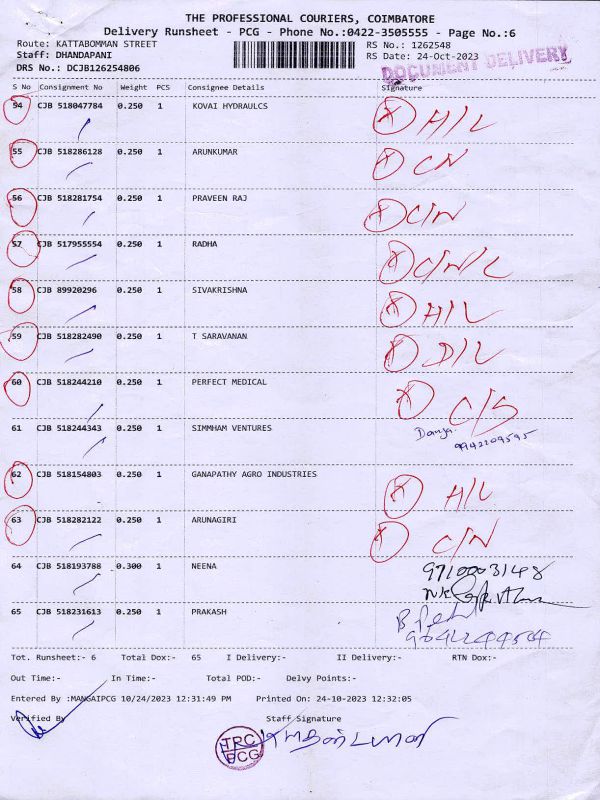 THE PROFESSIONAL COURIERS, COIMBATORE
Delivery Runsheet - PCG - Phone No.:0422-3505555 - Page No.:6
Route: KATTABOMMAN STREET RS No.: 1262548
Staff: DHANDAPANI RS Date: 24-Oct-2023
DRS No.: DCJB126254806 DOCUMENT DELIVERY
S No Consignment No Weight PCS Consignee Details Signature
54 CJB 518047784 0.250 1 KOVAI HYDRAULCS X H/L
55 CJB 518286128 0.250 1 ARUNKUMAR X CN
56 CJB 518281754 0.250 1 PRAVEEN RAJ X C/N
57 CJB 517955554 0.250 1 RADHA X C/N/L
58 CJB 89920296 0.250 1 SIVAKRISHNA X H/L
59 CJB 518282490 0.250 1 T SARAVANAN X D/L
60 CJB 518244210 0.250 1 PERFECT MEDICAL X C/S
61 CJB 518244343 0.250 1 SIMMHAM VENTURES
9942209595
62 CJB 518154803 0.250 1 GANAPATHY AGRO INDUSTRIES X H/L
63 CJB 518282122 0.250 1 ARUNAGIRI X C/N
64 CJB 518193788 0.300 1 NEENA 9710003148
65 CJB 518231613 0.250 1 PRAKASH
Tot. Runsheet:- 6 Total Dox:- 65 I Delivery:- II Delivery:- RTN Dox:-
Out Time:- In Time:- Total POD:- Delvy Points:-
Entered By :MANGAIPCG 10/24/2023 12:31:49 PM Printed On: 24-10-2023 12:32:05
Verified By Staff Signature
TPC
PCG